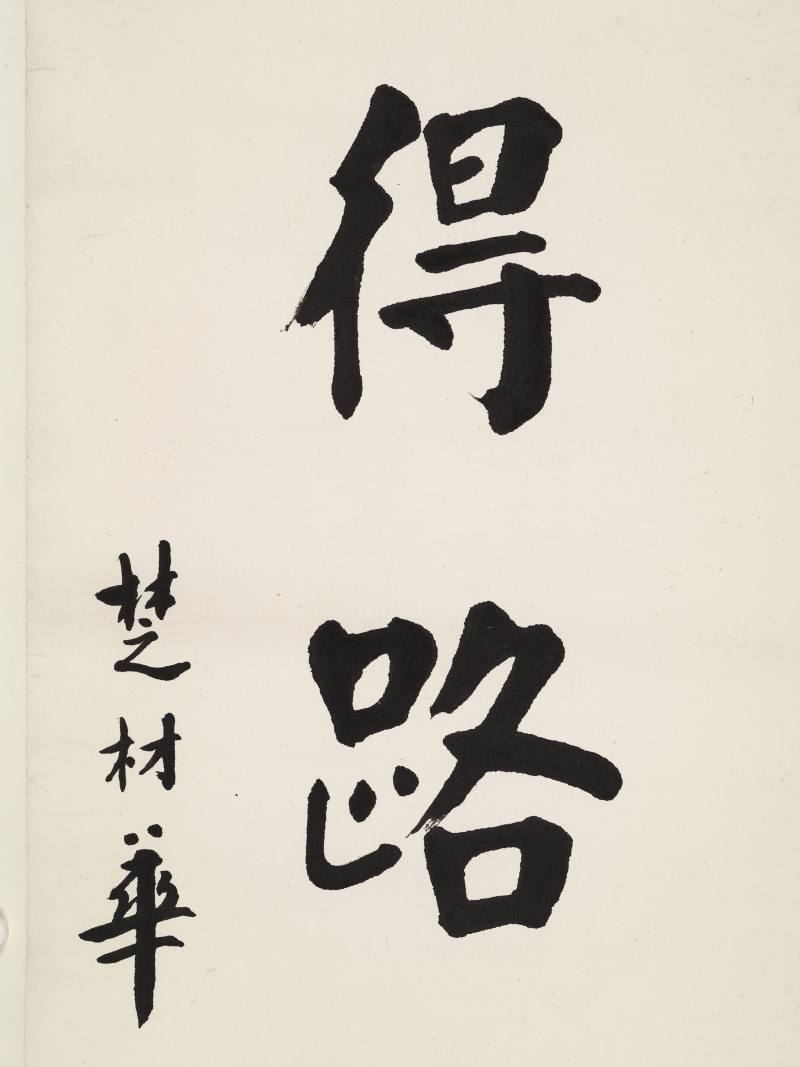 得路
楚材華